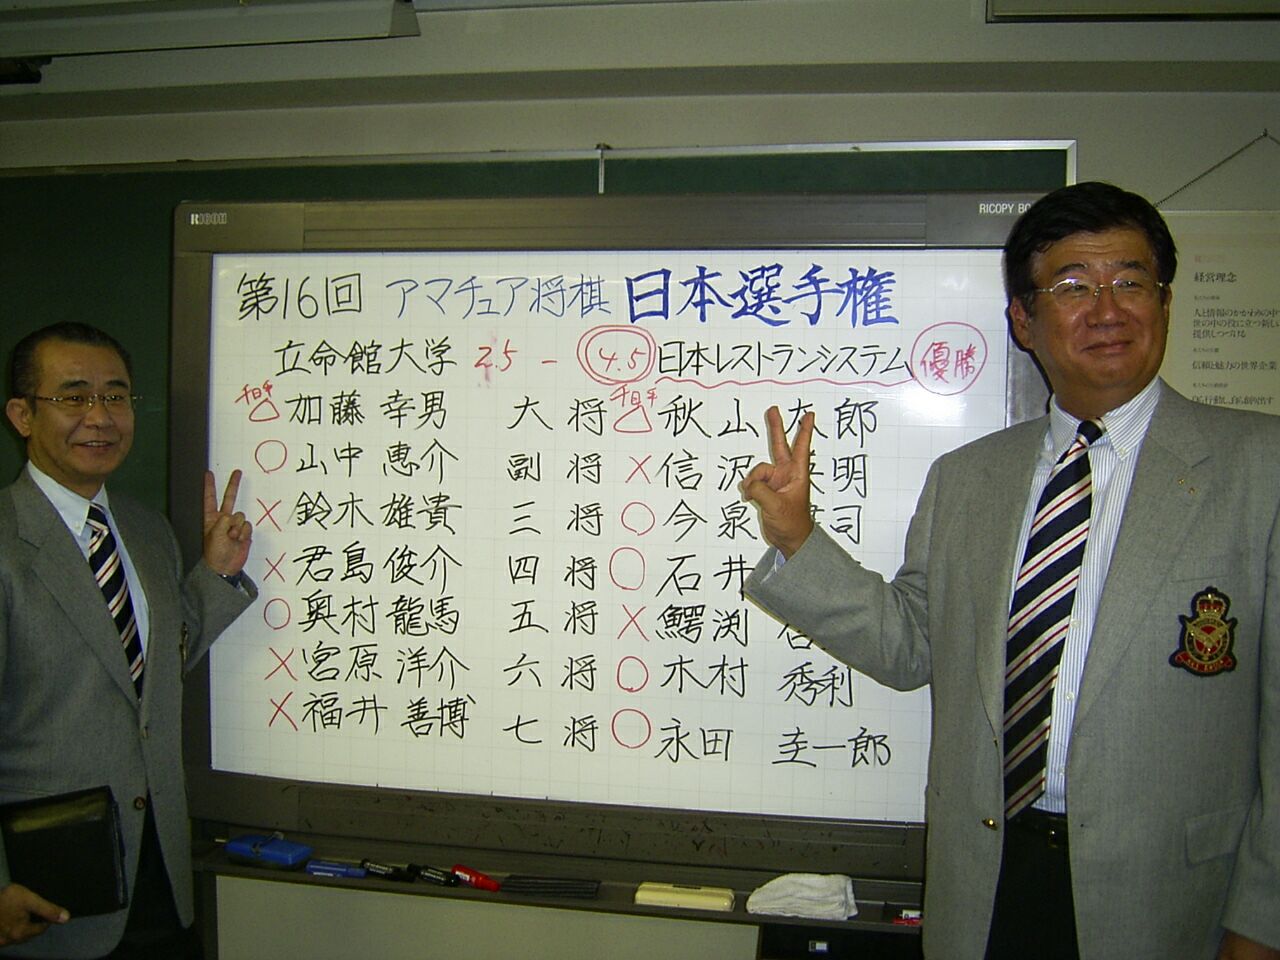 RICOH
RICOPY
第16回 アマチュア将棋 日本選手権
立命館大学 2.5 - 4.5 日本レストランシステム 優勝
千日手 △ 加藤 幸男 大将 千日手 △ 秋山 太郎
○ 山中 恵介 副将 × 信沢 明
× 鈴木 雄貴 三将 ○ 今泉 司
× 君島 俊介 四将 ○ 石井
○ 奥村 龍馬 五将 × 鰐渕
× 宮原 洋介 六将 ○ 木村 秀利
× 福井 善博 七将 ○ 永田 圭一郎
経営理念
人と情報のかかわりの中
世の中の役に立つ新し
提供しつづける
信頼と魅力の世界企業